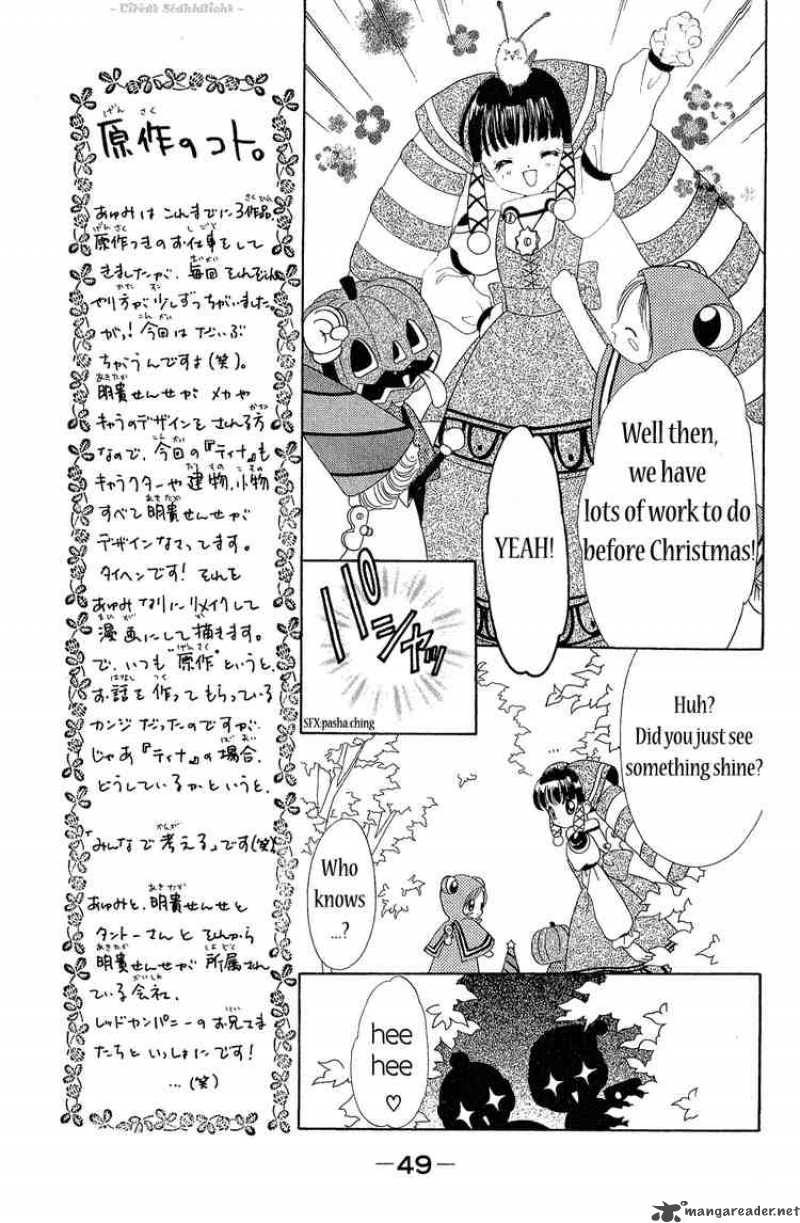 原作のコト。
げん さく
あゆみは これまでに3作品
さくひん
原作つきの お仕事をして
げんさく
しごと
きましたが、毎回 それぞれ
まいかい
やり方が 少しずつちがいました。
かた
すこ
がっ! 今回は だいぶ
こんかい
ちがうんですよ(笑)。
明貴せんせが メカや
あきたか
キャラのデザインを される方
かた
なので、今回の『ティナ』も
こんかい
キャラクターや 建物、小物
たてもの
こもの
すべて 明貴せんせが
あきたか
デザインなさってます。
タイヘンです! それを
あゆみなりに リメイクして
漫画にして 描きます。
まんが
で、いつも "原作" というと、
げんさく
お話を 作ってもらっている
はなし
カンジ だったのですが、
じゃあ『ティナ』の 場合、
ばあい
どうしているか というと、
「みんなで 考える」です(笑)
かんが
あゆみと、明貴せんせと
あきたか
タントーさんと それから
明貴せんせが 所属され
あきたか
しょぞく
ている 会社、
かいしゃ
レッドカンパニーの お兄さま
にい
たちと いっしょにです!
…(笑)
Well then,
we have
lots of work to do
before Christmas!
YEAH!
パシャッ
SFX:pasha ching
Huh?
Did you just see
something shine?
Who
knows
...?
hee
hee
♡
-49-
mangareader.net